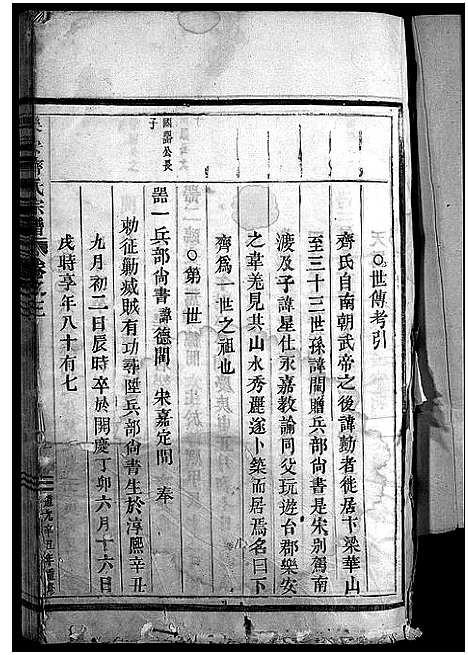 世傳考引
齊氏自南朝武帝之後諱勳者徙居卞梁華山
至三十三世孫諱聞贈兵部尚書是宋別駕南
渡及子諱星仕永嘉教諭同父玩遊台郡樂安
之韋羌見其山水秀麗遂卜築而居焉名曰下
齊爲一世之祖也
第一世
國器公長子
器一兵部尚書諱德閏 宋嘉定間 奉
勅征勦滅賊有功尋陞兵部尚書生於淳熙辛丑
九月初二日辰時卒於開慶丁卯六月十六日
戌時享年八十有七
齊氏宗譜